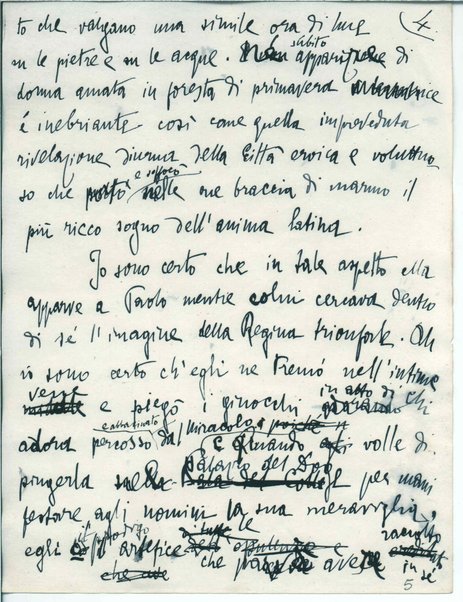 4.
to che valgano una simile ora di luce
su le pietre e su le acque. subito apparire di
donna amata in foresta di primavera
è inebriante così come quella impreveduta
rivelazione diurna della Città eroica e voluttuo
so che portò e soffocò nelle sue braccia di marmo il
più ricco sogno dell'anima latina.
Io sono certo che in tale aspetto ella
apparve a Paolo mentre colui cercava dentro
di sé l'imagine della Regina trionfante. Oh
io sono certo ch'egli ne tremò nell'intime
vene e piegò i ginocchi in atto di chi
adora percosso dal miracolo e quando volle di
pingerla Palazzo del Doge per mani
festare agli uomini la sua meraviglia,
egli artefice le
che avesse raccolto
in sé
5